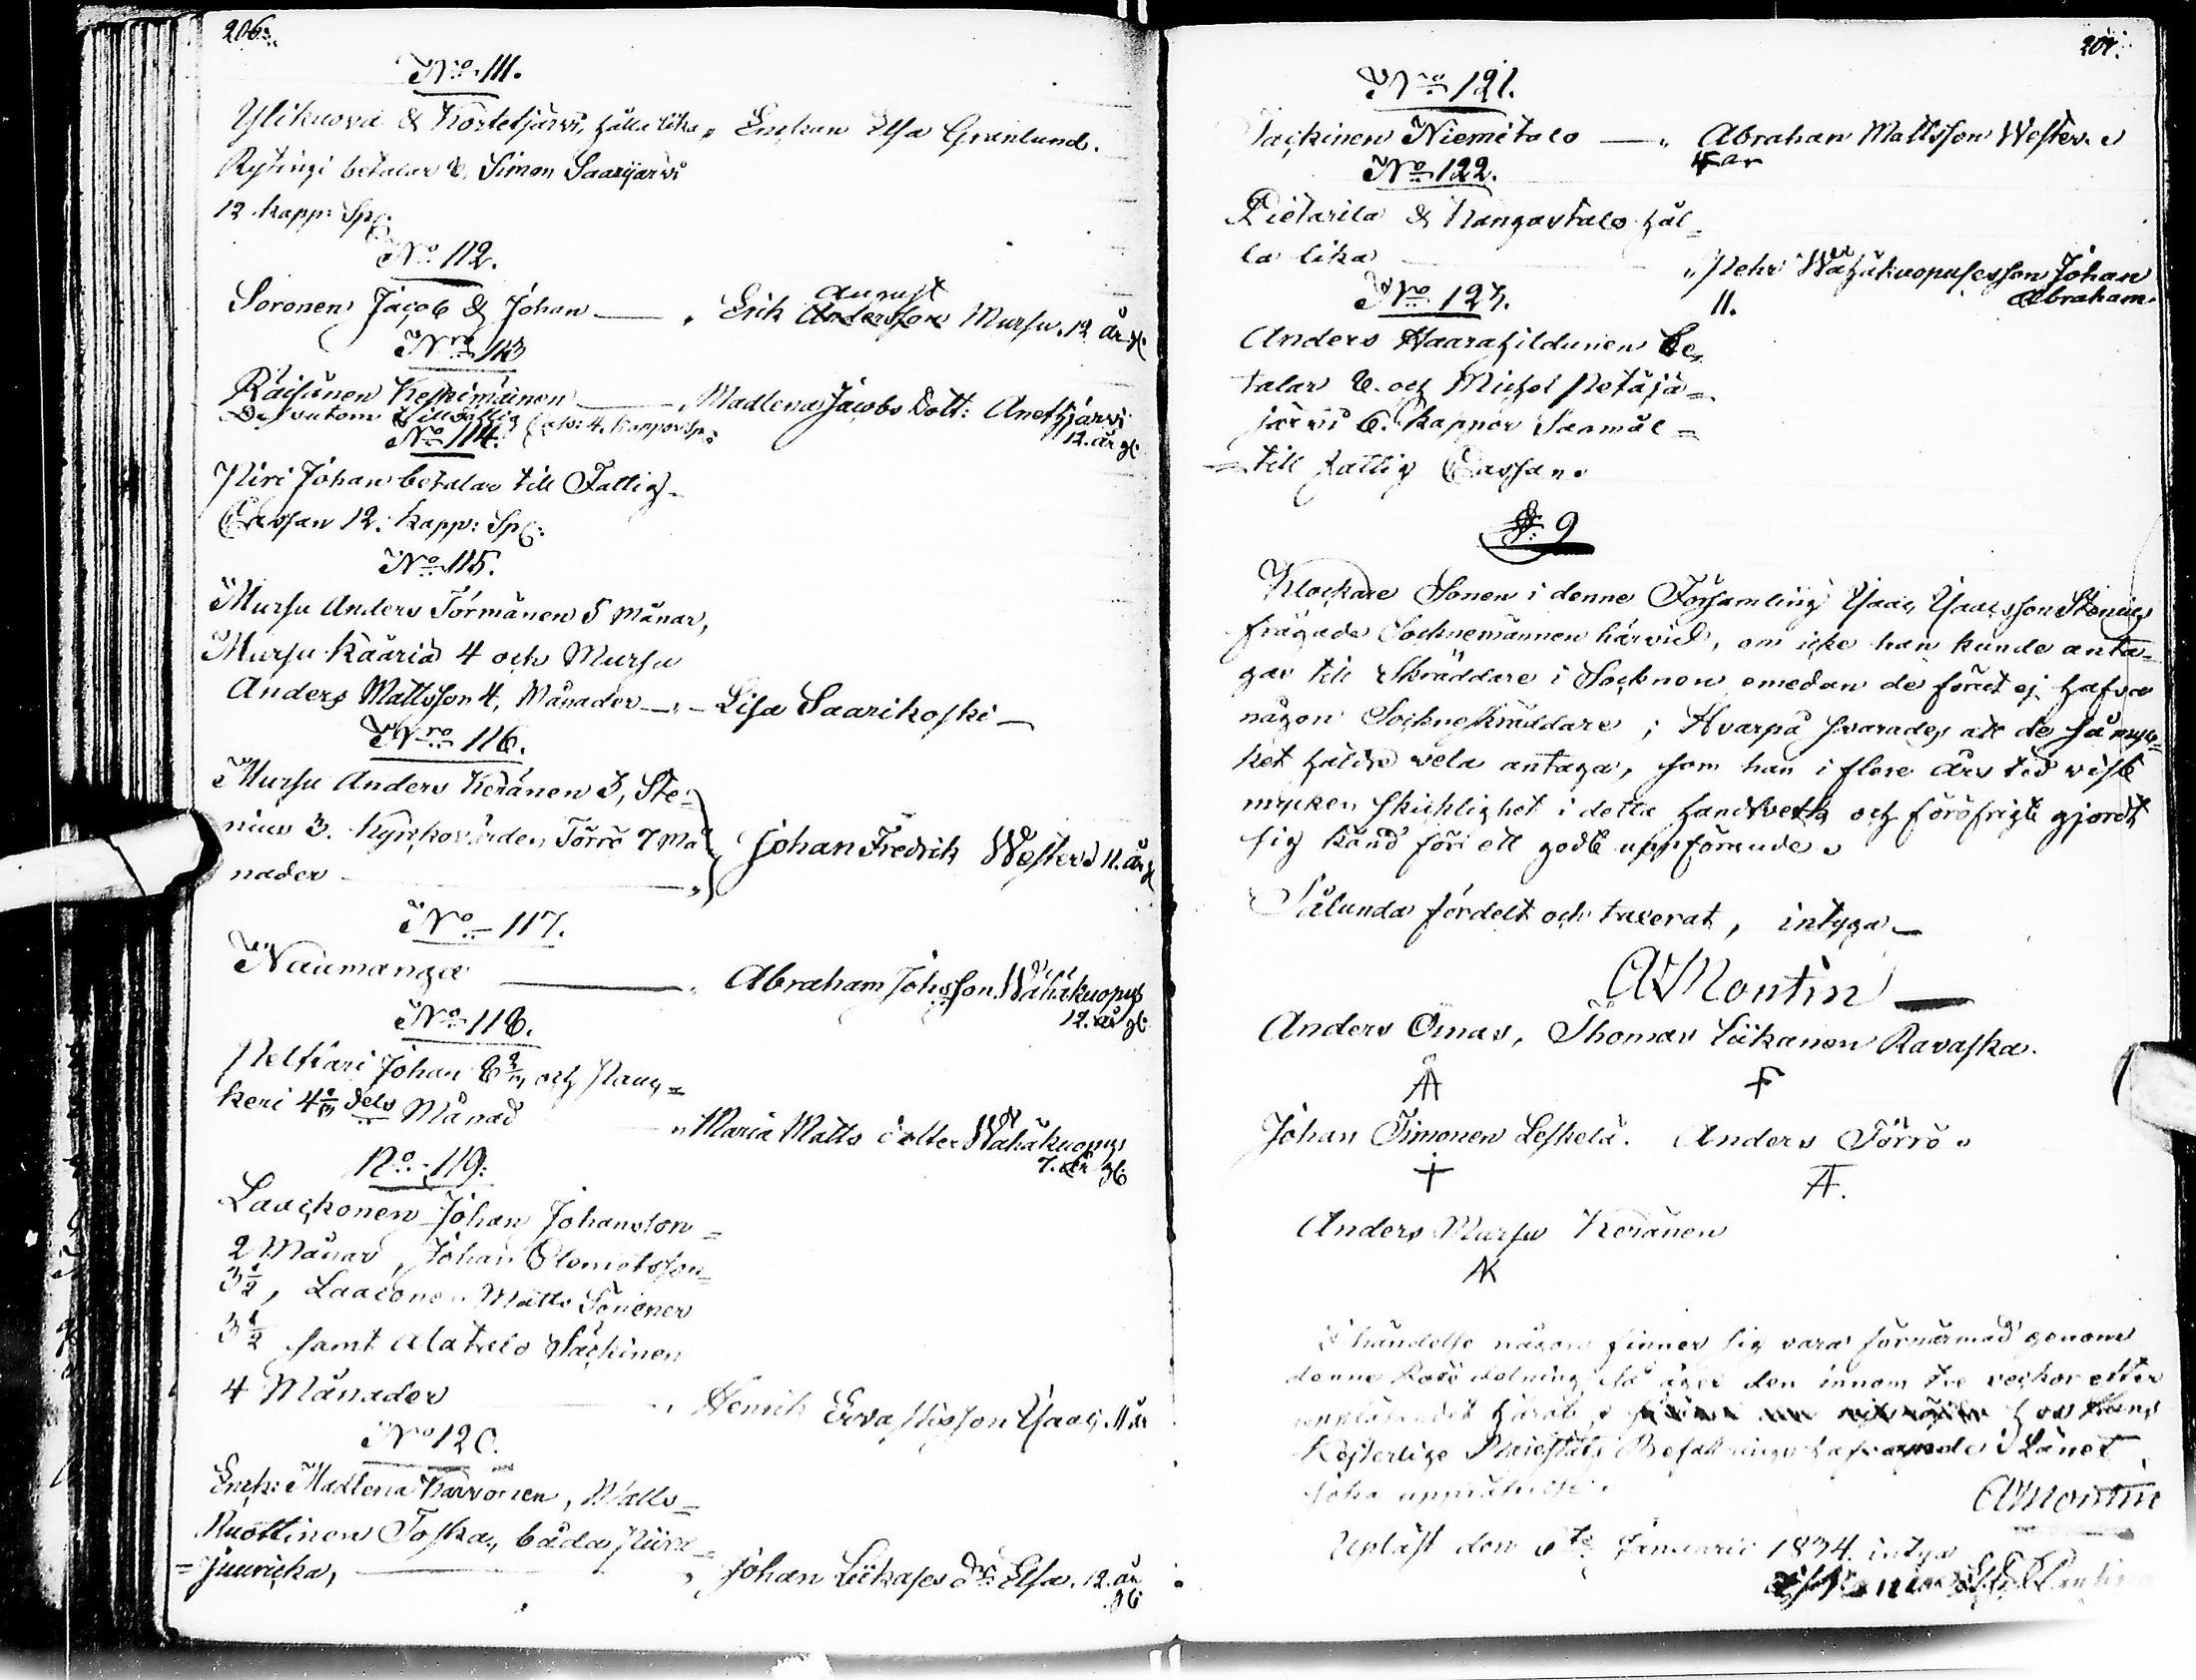 206.
No 111.
Ylikuova & Kostetjärvi, hålla lika " Enckan Elsa Granlund.
Rytingi betalar & Simon Saarijärvi
12 kapp: Sp:
No 112.
Soronen Jacob & Johan — " Erik August Andersson Mursu. 12 år gl:
Nro 113
Räisänen Keskimäinen — " Madlena Jacobs Dott: Anetjärvi
Dessutom till Fattig Cass: 4. Kappor Sp: 12. år gl:
No 114.
Piri Johan betalar till Fattig
Cassan 12. kapp: Sp:
No 115.
Mursu Anders Törmänen 5 Månar,
Mursu Kaaria 4 och Mursu
Anders Mattsson 4, Månader — " — Lisa Saarikoski —
Nro 116.
Mursu Anders Keränen 3, Ste-
nius 3. Kyrckovärden Törrö 7 Må
nader — " Johan Fredrik Wester 11. år gl
No 117.
Naumanga — " Abraham Johsson Wähäkuopus
12. år gl:
No 118.
Pelttari Johan 8 2/3, och Pauc=
keri 4 2/3 dels Månad " Maria Matts dotter Wähäkuopus
7. år gl:
No 119:
Laackonen Johan Johansson =
2 Månar, Johan Clemetsson=
3 1/2, Laaconen Matts
3 1/2 samt Alatalo Säckinen
4 Månader " Henrik Ervastisson Isaac. 11 år
No 120.
Enck: Madlena Karvonen, Matts=
Ruottinen Toska, båda
=Juuricka, — " Johan Liikases Dr: Elsa. 12. år
gl:
207.
No 121.
Säckinen Niemitalo — " Abraham Mattsson Wester.
No 122.
Pietarila & Kangastalo hål=
la lika " Pehr Wähäkuopusesson Johan
11. Abraham.
No 123.
Anders Haarahildunen be,
talar 6. och Michel Petäjä=
järvi 6. Kappor Spanmål =
= till fattig Cassan.
§: 9
Klockare Sonen i denne Församling Isaac Isacsson Stenius
frågade Socknemännen härvid, om icke han kunde anta=
gas till Skräddare i Socknen emedan de förut ej hafva
någon Sockneskräddare; Hvarpå svarades att de så myc=
ket häldre vela antaga, som han i flere års tid vist
mycken skicklighet i detta handtverk och föröfrigt gjordt
sig känd för ett godt uppförande.
Sålunda fördelt och taxerat, intyga —
A Montin —
Anders Ömas, Thomas Liikanen Ravaska.
Johan Timonen Leskelä. Anders Törrö.
Anders Mursu Keränen
I händelse någon finner sig vara förnärmad genom
denne Rotefördelning, så äger den innom tre veckor efter
hos Hans
Kejserlige Majestäts Befallningshafvande i Länet
söka upprättelse.
AMontin
Upläst den 6te Januarii 1834. intyga